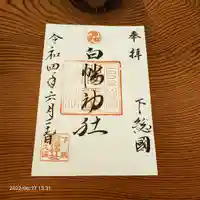 奉拝
下総國
白幡神社
令和四年六月二十七日
2022/06/27 13:31